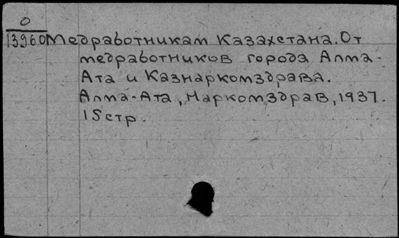 0
13960 Медработникам Казахстана. От
медработников города Алма-
Ата и Казнаркомздрава.
Алма-Ата, Наркомздрав, 1937.
15стр.